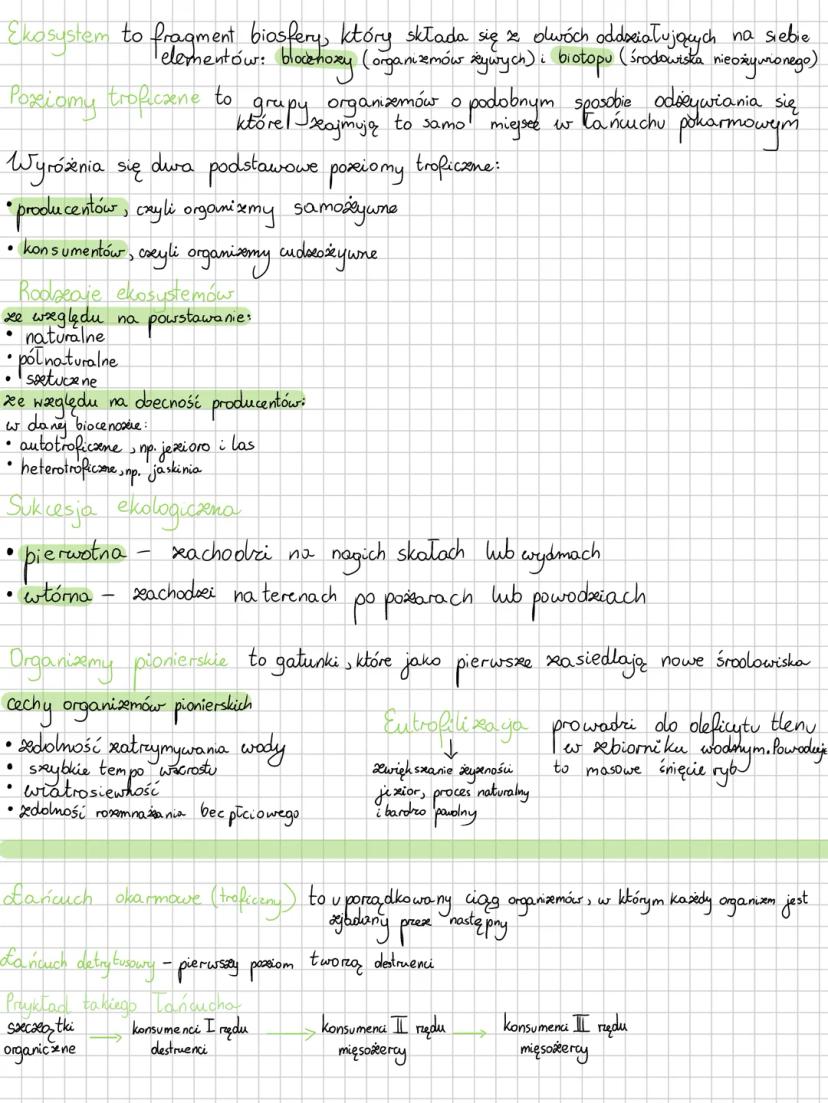 Ekosystem to fragment biosfery, który składa się z dwóch oddziałujących na siebie
elementów: biocenozy (organizmów żywych) i biotopu (środowiska nieożywionego)
Poziomy troficzne to grupy organizmów o podobnym sposobie odżywiania się
które zajmują to samo miejsce w łańcuchu pokarmowym
Wyróżnia się dwa podstawowe poziomy troficzne:
• producentów, czyli organizmy samożywne
• konsumentów, czyli organizmy cudzożywne
Rodzaje ekosystemów
ze względu na powstawanie:
• naturalne
• półnaturalne
• sztuczne
ze względu na obecność producentów:
w danej biocenozie:
• autotroficzne, np. jezioro i las
• heterotroficzne, np. jaskinia
Sukcesja ekologiczna
• pierwotna – zachodzi na nagich skałach lub wydmach
• wtórna – zachodzi na terenach po pożarach lub powodziach
Organizmy pionierskie to gatunki, które jako pierwsze zasiedlają nowe środowiska
cechy organizmów pionierskich
• zdolność zatrzymywania wody
• szybkie tempo wzrostu
• wiatrosiewność
• zdolność rozmnażania bezpłciowego
Eutrofilizacja
↓
zwiększanie żyzności
jezior, proces naturalny
i bardzo powolny
prowadzi do deficytu tlenu
w zbiorniku wodnym. Powoduje
to masowe śnięcie ryb
Łańcuch okarmowe (troficzny) to uporządkowany ciąg organizmów, w którym każdy organizm jest
zjadany przez następny
Łańcuch detrytusowy – pierwszy poziom tworzą destruenci
Przykład takiego łańcucha
szczątki organiczne → konsumenci I rzędu destruenci → konsumenci II rzędu mięsożercy → konsumenci III rzędu mięsożercy